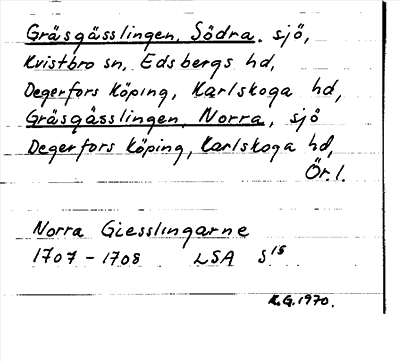 Gräsgässlingen, Södra. sjö,
Kvistbro sn, Edsbergs hd,
Degerfors köping, Karlskoga hd,
Gräsgässlingen, Norra, sjö
Degerfors köping, Karlskoga hd,
Ör. l.
Norra Giesslingarne
1707-1708 LSA S15
K.G. 1970.